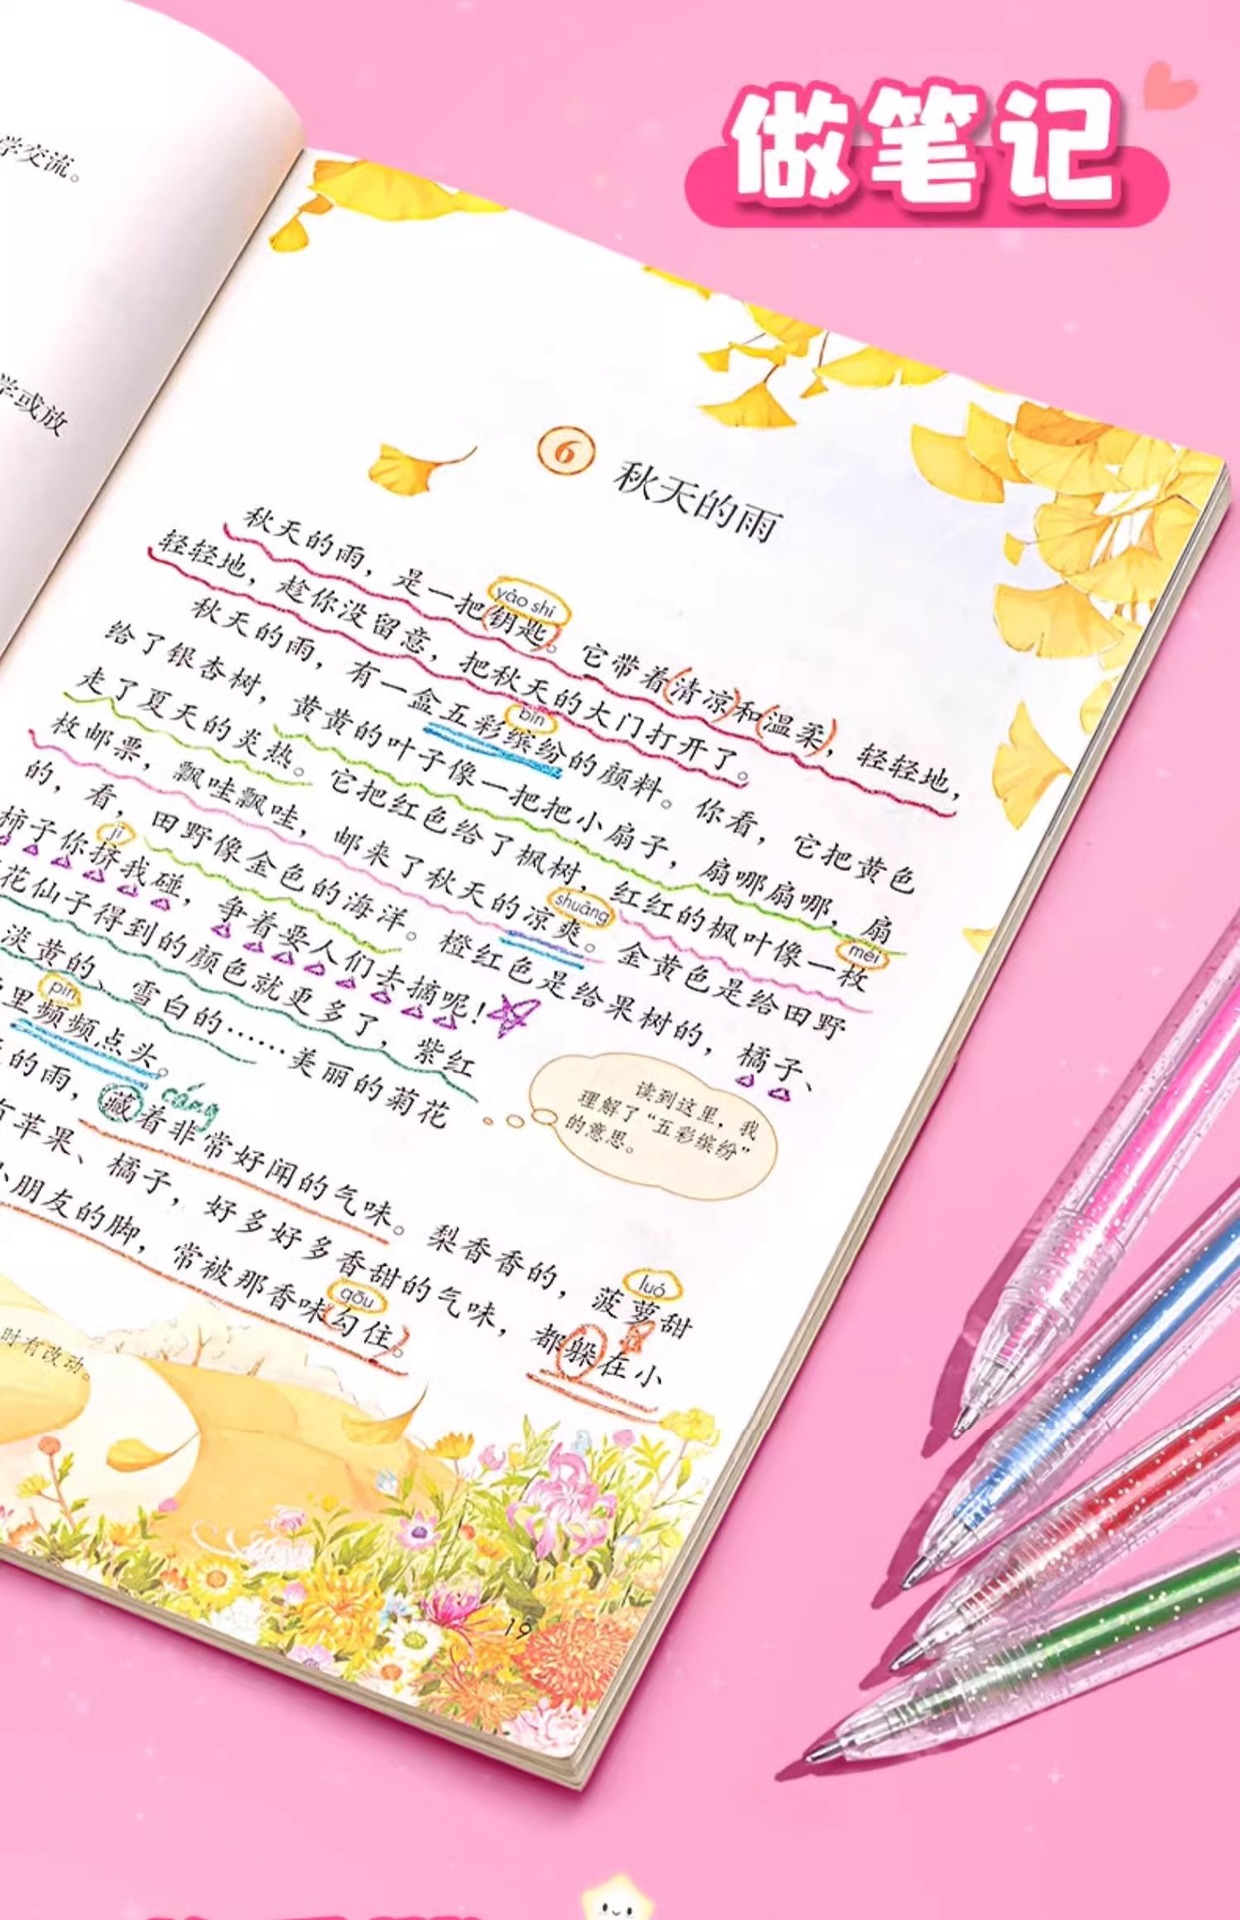 做笔记
学交流。
学或放
6 秋天的雨
秋天的雨，是一把钥匙。它带着清凉和温柔，轻轻地，
yào shi
轻轻地，趁你没留意，把秋天的大门打开了。
秋天的雨，有一盒五彩缤纷的颜料。你看，它把黄色
bīn
给了银杏树，黄黄的叶子像一把把小扇子，扇哪扇哪，扇
走了夏天的炎热。它把红色给了枫树，红红的枫叶像一枚
méi
枚邮票，飘哇飘哇，邮来了秋天的凉爽。金黄色是给田野
shuǎng
的，看，田野像金色的海洋。橙红色是给果树的，橘子、
柿子你挤我碰，争着要人们去摘呢！
jǐ
花仙子得到的颜色就更多了，紫红
淡黄的、雪白的……美丽的菊花
里频频点头。
pín
的雨，藏着非常好闻的气味。梨香香的，菠萝甜
cáng
luó
有苹果、橘子，好多好多香甜的气味，都躲在小
小朋友的脚，常被那香味勾住。
gōu
读到这里，我
理解了“五彩缤纷”
的意思。
时有改动。
19